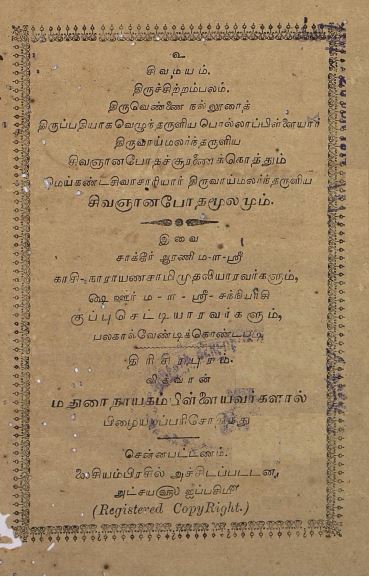 உ
சிவமயம்.
திருச்சிற்றம்பலம்.
திருவெண்ணை நல்லூரைத்
திருப்பதியாகவெழுந்தருளிய பொல்லாப்பிள்ளையார்
திருவாய்மலர்ந்தருளிய
சிவஞானபோதச்சூரணைக்கொத்தும்
மெய்கண்டசிவாசாரியார் திருவாய்மலர்ந்தருளிய
சிவஞானபோதமூலமும்.
இவை
ஆரணி ம-ா-ஶ்ரீ
காசி-நாராயணசாமிமுதலியாரவர்களும்,
ஷை ஊர் ம-ா-ஶ்ரீ-சந்நியாசி
குப்புசெட்டியாரவர்களும்,
பலகால்வேண்டிக்கொண்டபடி,
திரிசிரபுரம்.
வித்வான்
மதுரைநாயகம்பிள்ளையவர்களால்
பிழையறப்பரிசோதித்து
சென்னபட்டணம்.
அச்சிடப்பட்டன.
அட்சயஹு ஐப்பசிமீ
(Registered CopyRight.)